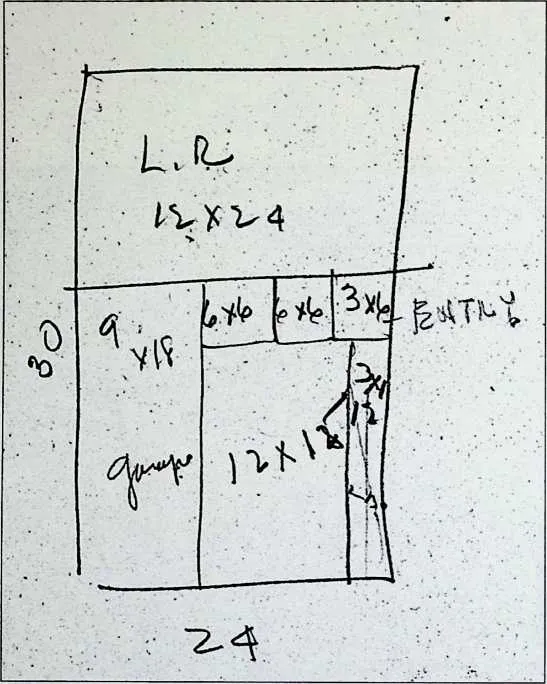 L.R
12 X 24
30
9
X18
6x6
6x6
3x6
ENTRY
garage
12 X 12
3x
12
24